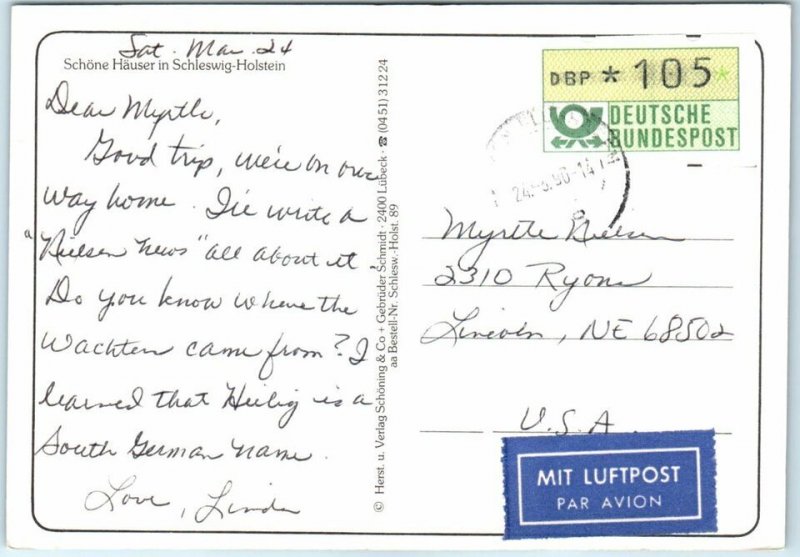 Sat. Mar 24
Schöne Häuser in Schleswig-Holstein
Dear Myrtle,
Good trip, we're on our
way home. I'll write a
"Nielsen News" all about it.
Do you know where the
Wachten came from? I
learned that Heilig is a
South German name.
Love, Linda
© Herst. u. Verlag Schöning & Co + Gebrüder Schmidt · 2400 Lübeck · ☎ (0451) 31224
aa Bestell-Nr. Schlesw.-Holst. 89
DBP * 105 *
DEUTSCHE
BUNDESPOST
Myrtle Nielsen
2310 Ryons
Lincoln, NE 68502
U.S.A.
MIT LUFTPOST
PAR AVION